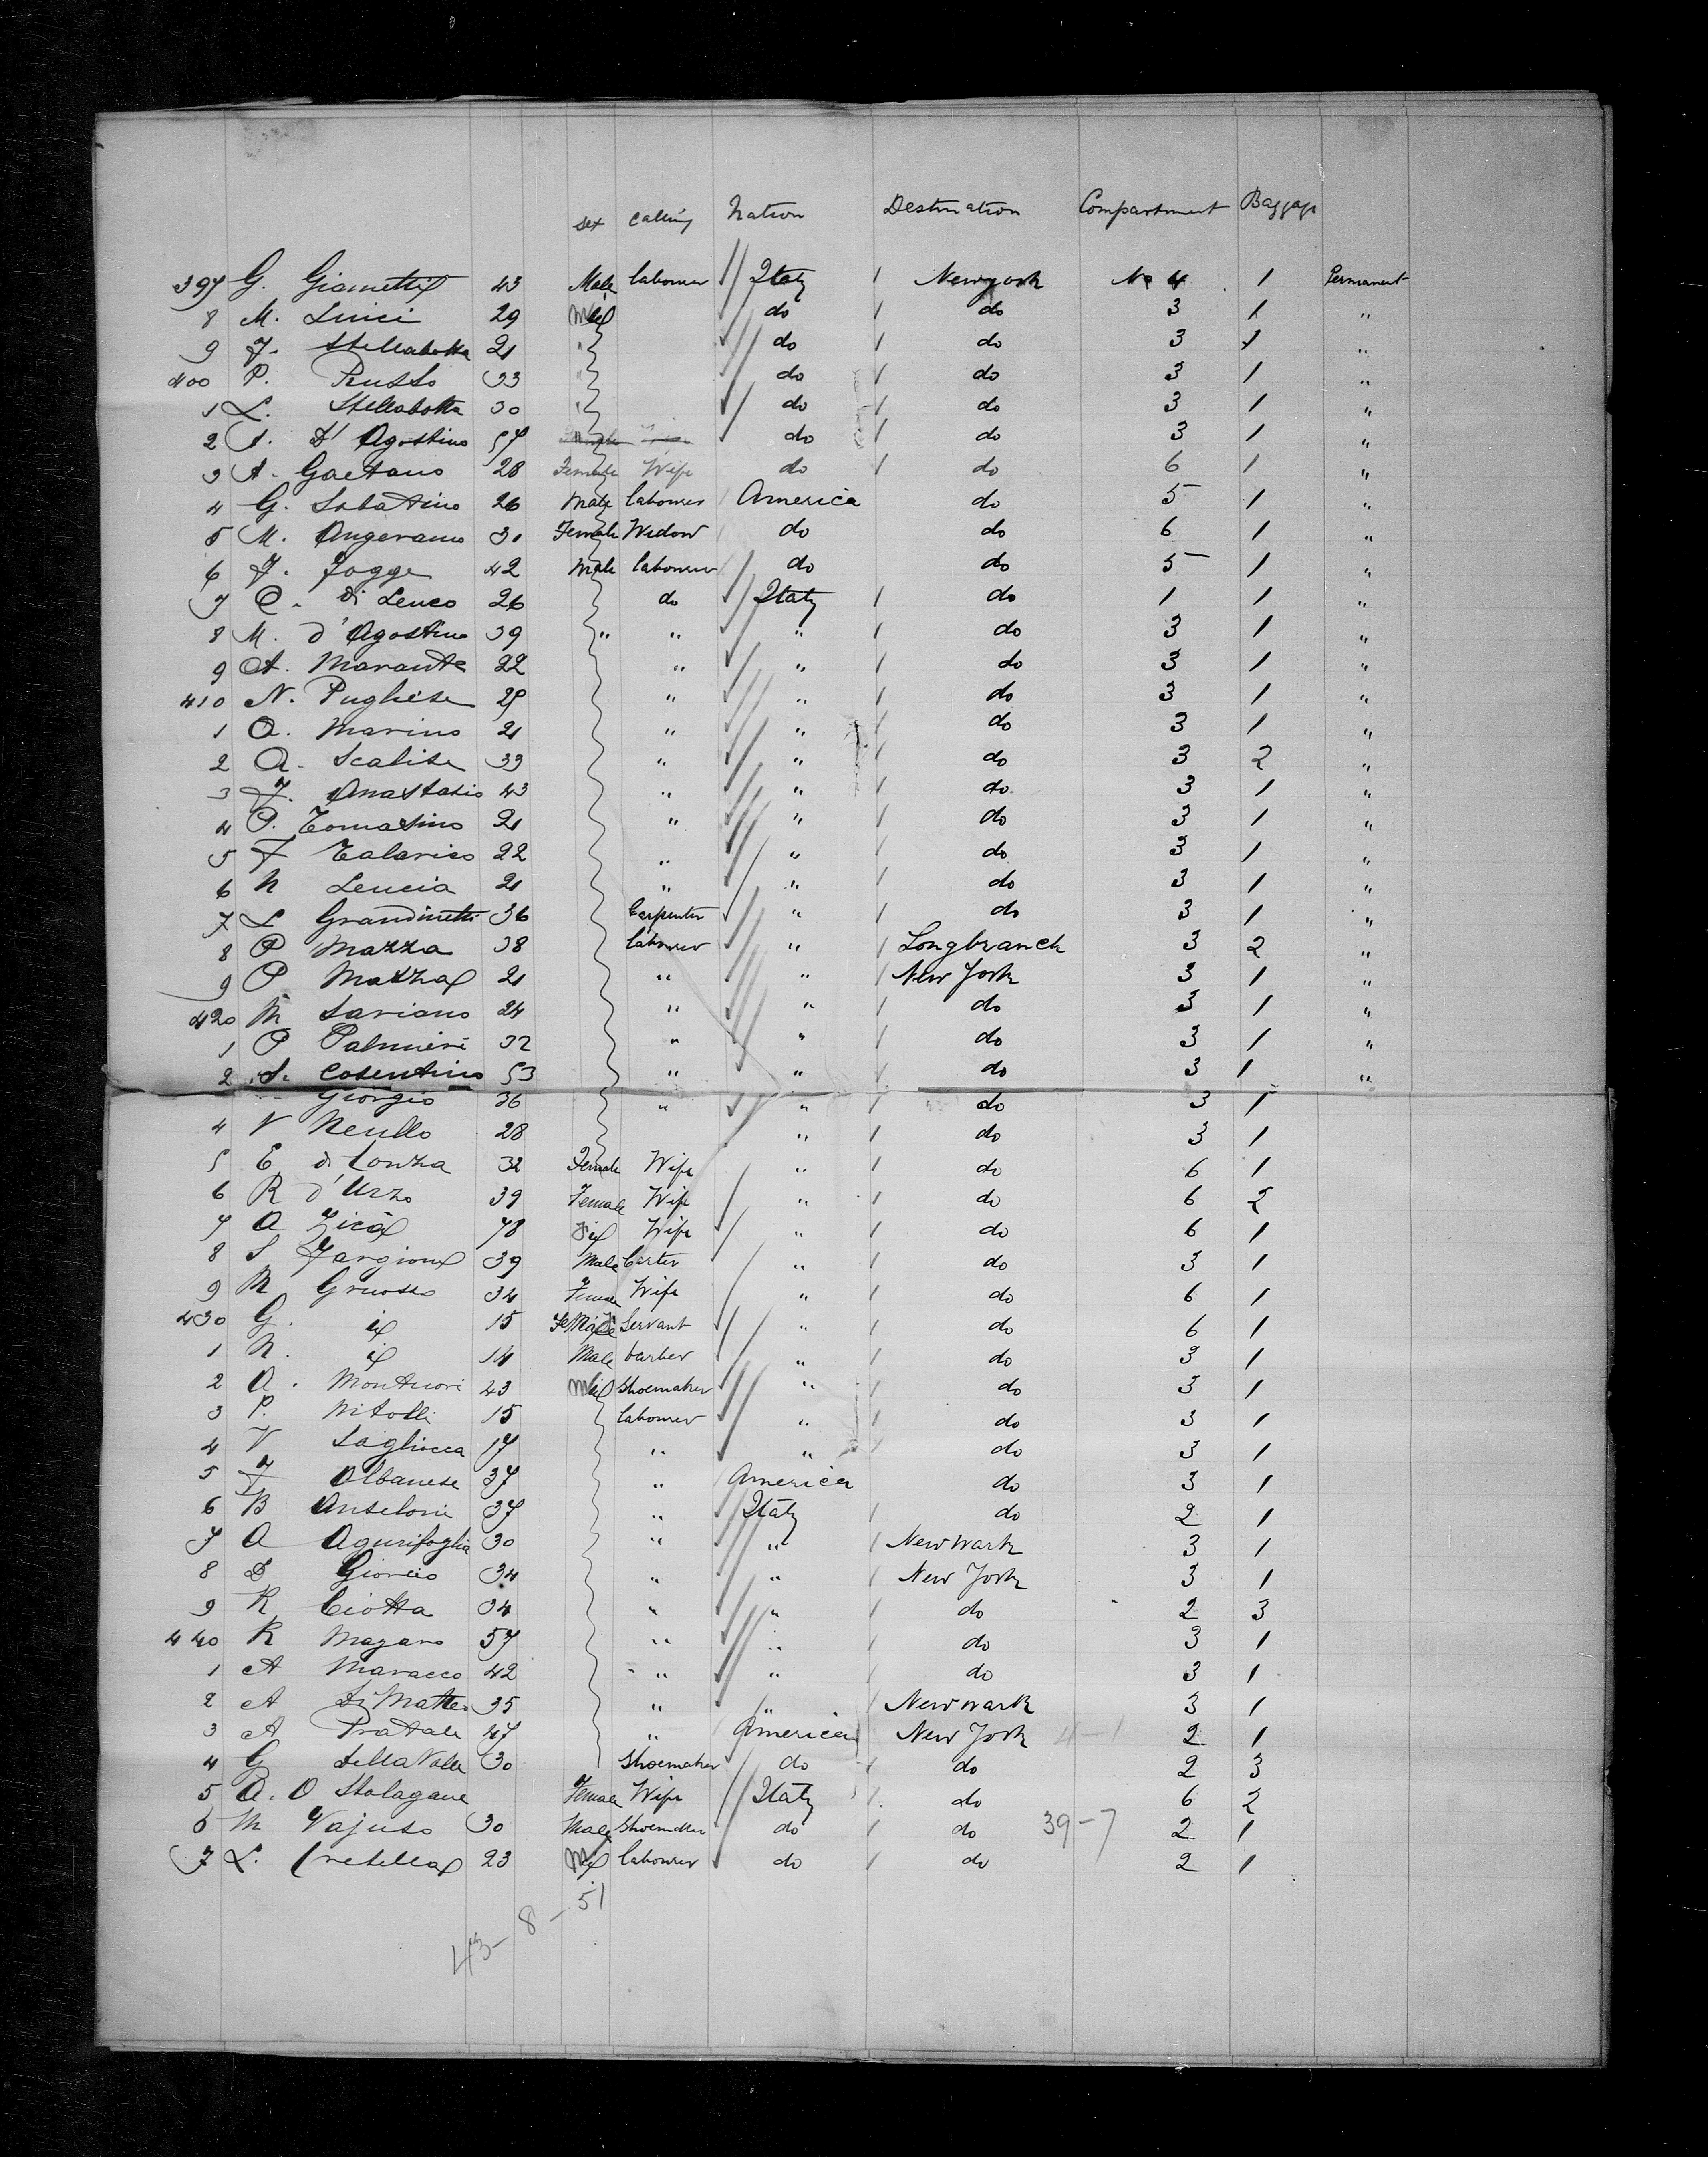 sex calling Nation Destination Compartment Baggage
397 G. Giametti 43 Male labourer Italy 1 Newyork No 4 1 Permanent
8 M. Linci 29 do 1 do 3 1 "
9 F. Stellabotta 21 " do 1 do 3 1 "
400 P. Russo 33 " do 1 do 3 1 "
1 L. Stellabotta 30 " do 1 do 3 1 "
2 A. D'Agostino 57 do 1 do 3 1 "
3 A. Gaetano 28 Female Wife do 1 do 6 1 "
4 G. Sabatino 26 Male labourer America do 5 1 "
5 M. Angerano 31 Female Widow do do 6 1 "
6 F. Fogge 42 Male labourer do do 5 1 "
7 C. di Leuco 26 do Italy 1 do 1 1 "
8 M. d'Agostino 39 " " " 1 do 3 1 "
9 A. Marante 22 " " 1 do 3 1 "
410 N. Pughese 29 " " 1 do 3 1 "
1 A. Marino 21 " " 1 do 3 1 "
2 A. Scalise 33 " " 1 do 3 2 "
3 F. Anastasio 43 " " 1 do 3 1 "
4 P. Tomasino 21 " " 1 do 3 1 "
5 F Talarico 22 " " 1 do 3 1 "
6 N Leucia 21 " " 1 do 3 1 "
7 L Grandinetti 36 Carpenter " 1 do 3 1 "
8 P Mazza 38 labourer " 1 Longbranch 3 2 "
9 P Mazza 21 " " 1 New York 3 1 "
420 M Sariano 24 " " 1 do 3 1 "
1 P Palmieri 32 " " 1 do 3 1 "
2 S. Cosentino 53 " " 1 do 3 1 "
Giorgio 36 " " 1 do 3 1
4 V Neullo 28 " 1 do 3 1
5 E di Conza 32 Female Wife " 1 do 6 1
6 R d'Urzo 39 Female Wife " 1 do 6 2
7 A Zica 78 Wife " 1 do 6 1
8 S Fargione 39 Male Carter " 1 do 3 1
9 M Gruoso 34 Female Wife " 1 do 6 1
430 G. 15 Female Servant " 1 do 6 1
1 N. 14 Male barber " 1 do 3 1
2 A. Montuori 43 Shoemaker " 1 do 3 1
3 P. Nitolli 15 labourer " 1 do 3 1
4 V Sagliocca 17 " " 1 do 3 1
5 F Albanese 37 " America do 3 1
6 B Anseloni 37 " Italy 1 do 2 1
7 A Agurifoglia 30 " " 1 Newwark 3 1
8 D Giorcio 34 " " 1 New York 3 1
9 R Ciotta 34 " " 1 do 2 3
440 R Magano 57 " " 1 do 3 1
1 A Maracco 42 " " 1 do 3 1
2 A Di Matteo 35 " " 1 Newwark 3 1
3 A Pratale 47 " America New York 4-1 2 1
4 G DellaValle 30 Shoemaker do 1 do 2 3
5 A. O Stolagane Female Wife Italy 1 do 6 2
6 M Vajuso 30 Male Shoemaker do 1 do 39-7 2 1
7 L. 23 labourer do 1 do 2 1
43-8-51